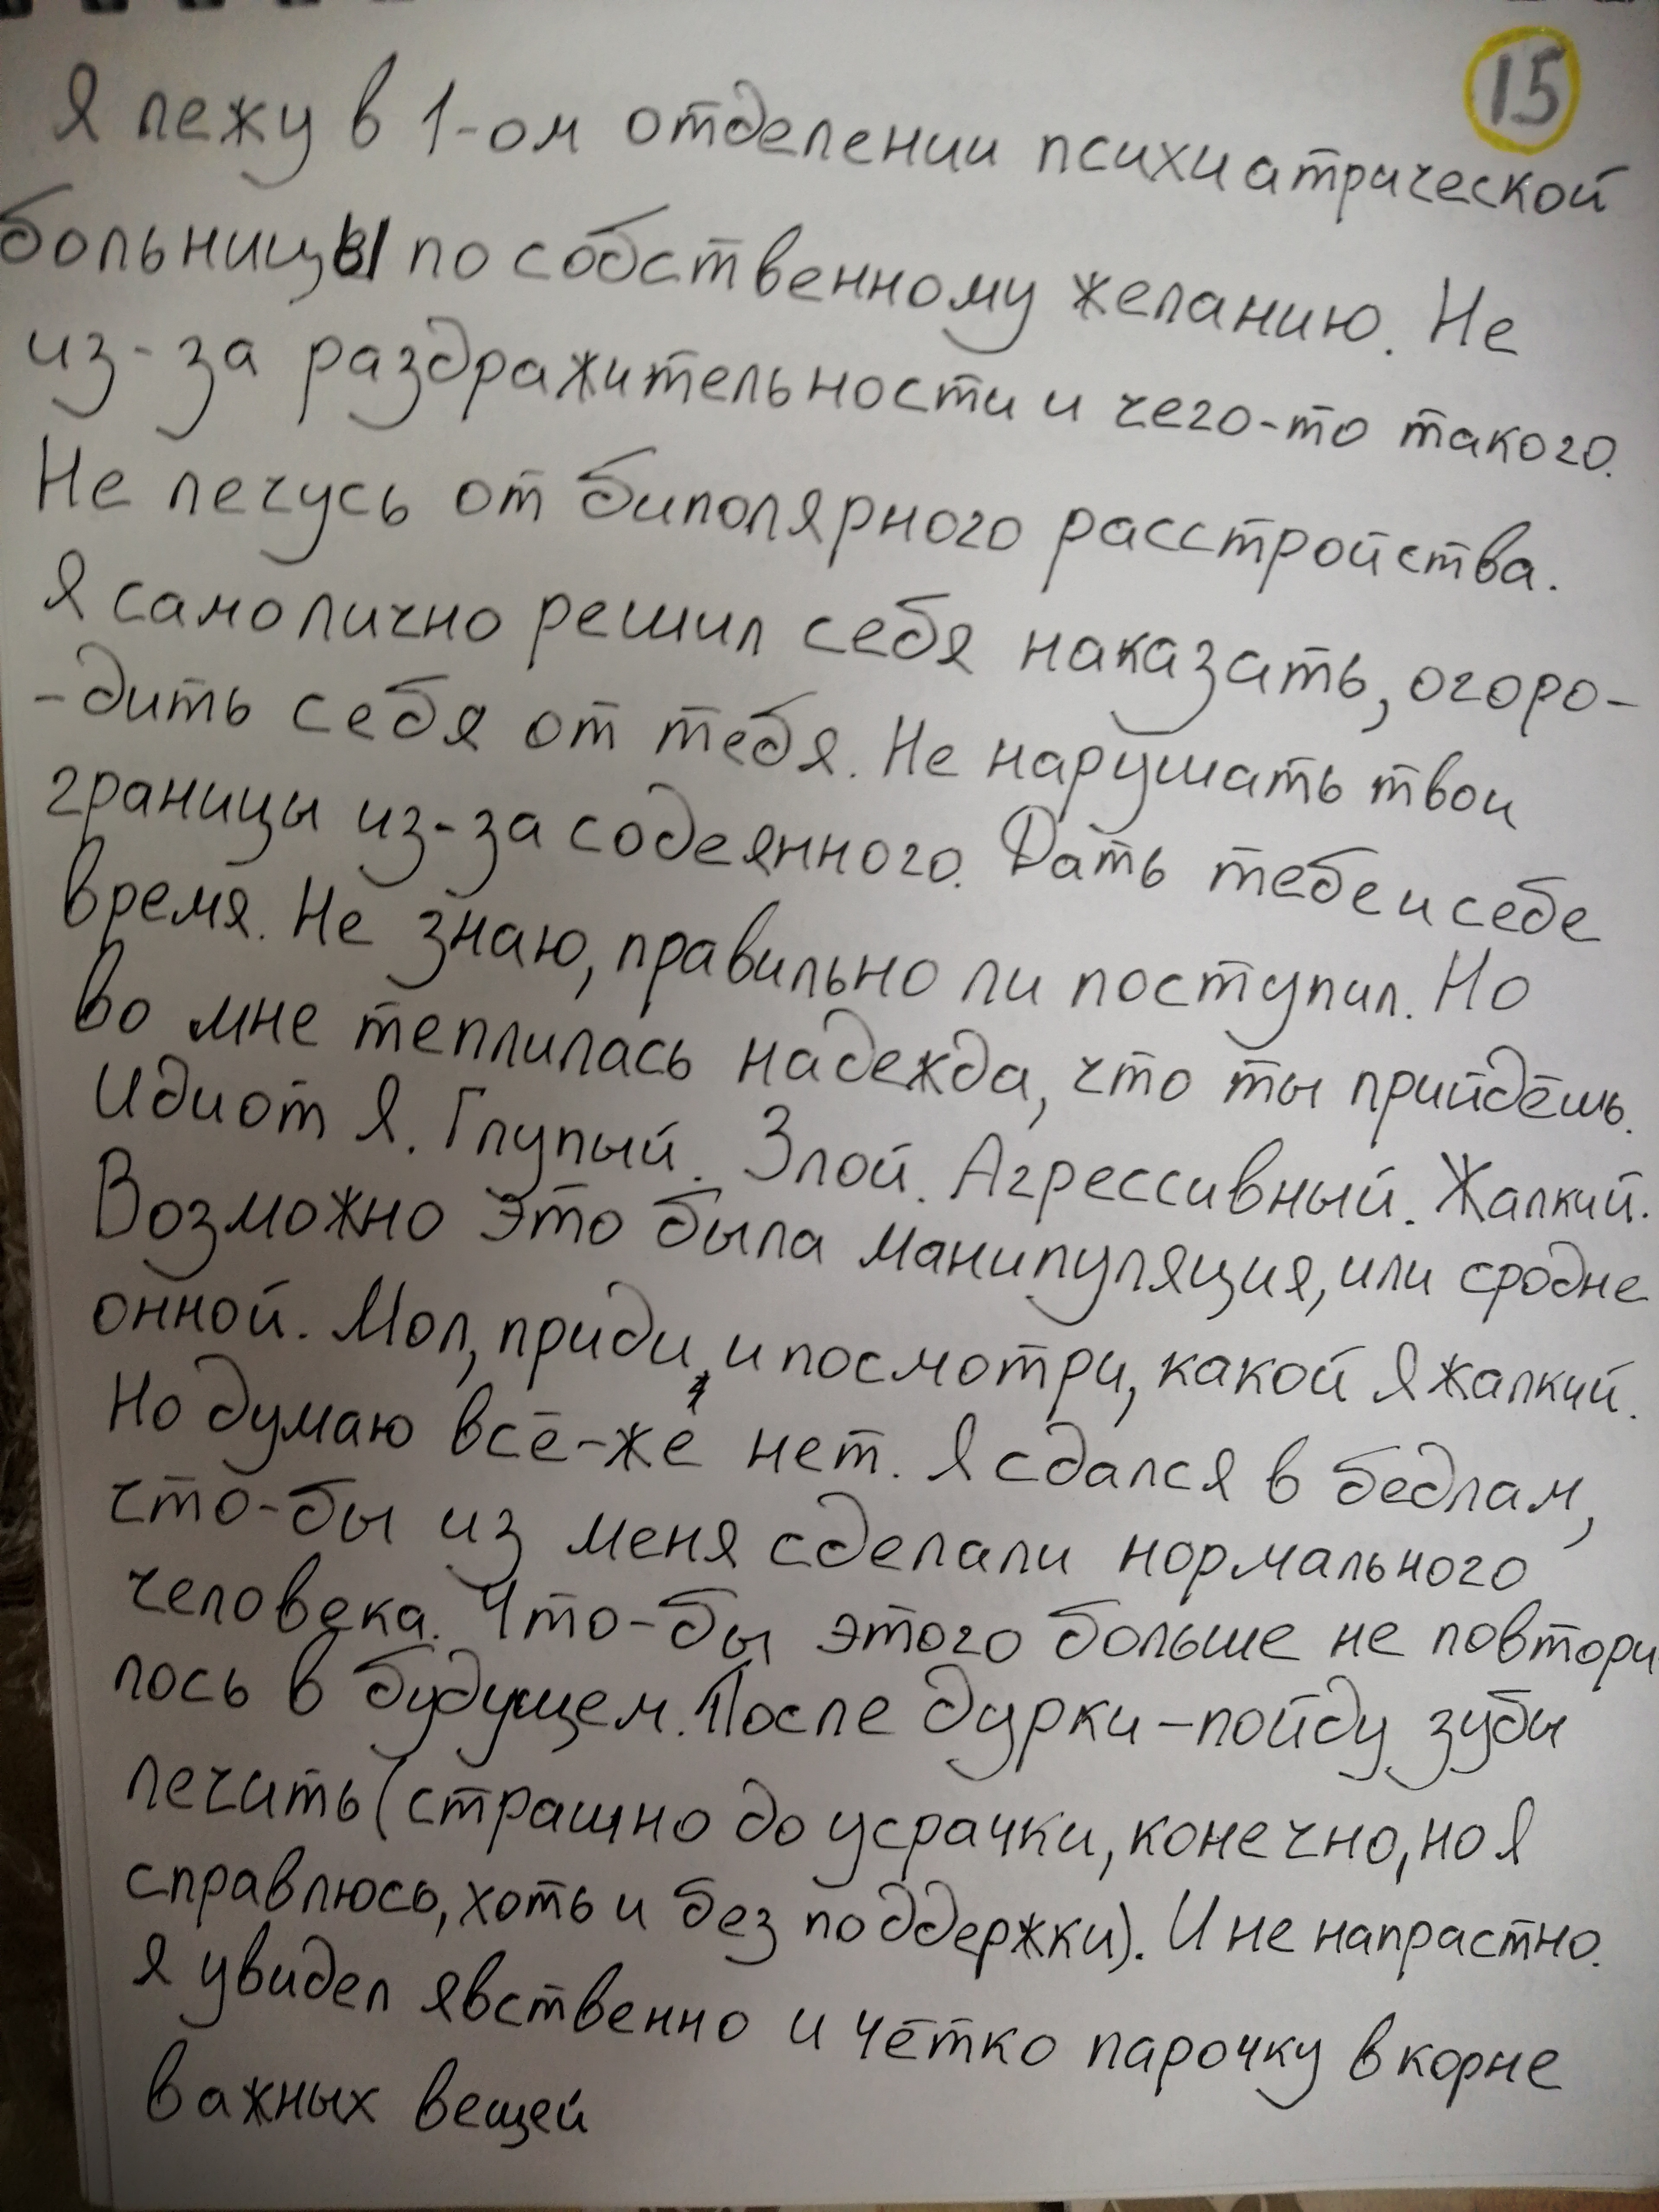 15
Я лежу в 1-ом отделении психиатрической
больницы по собственному желанию. Не
из-за раздражительности и чего-то такого.
Не лечусь от биполярного расстройства.
Я самолично решил себя наказать, огоро-
-дить себя от тебя. Не нарушать твои
границы из-за содеянного. Дать тебе и себе
время. Не знаю, правильно ли поступил. Но
во мне теплилась надежда, что ты прийдёшь.
Идиот Я. Глупый. Злой. Агрессивный. Жалкий.
Возможно это была манипуляция, или сродне
онной. Мол, приди, и посмотри, какой Я жалкий.
Но думаю всё-же нет. Я сдался в бедлам,
что-бы из меня сделали нормального
человека. Что-бы этого больше не повтори
лось в будущем. После дурки-пойду зубы
лечить (страшно до усрачки, конечно, но Я
справлюсь, хоть и без поддержки). И не напрастно.
Я увидел явственно и чётко парочку в корне
важных вещей